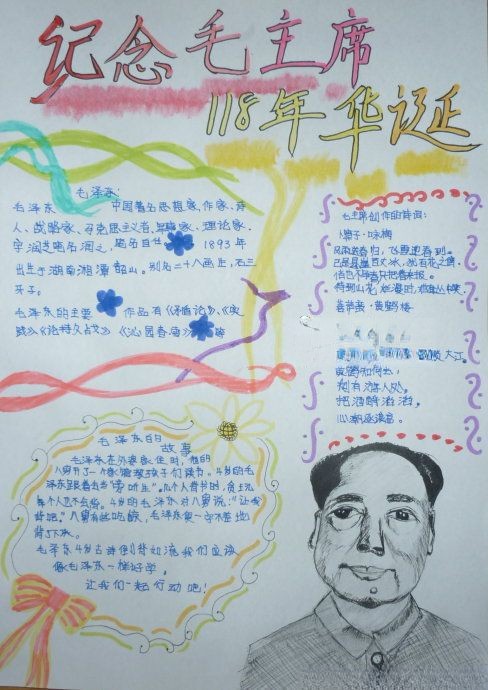 纪念毛主席
118年华诞
毛泽东:
毛泽东 中国著名思想家、作家、诗
人、战略家、马克思主义者、军事家、理论家.
字润芝笔名润之, 1893年
出生于湖南湘潭韶山。别名二十八画生,石三
牙子。
毛泽东的主要 作品有《矛盾论》、《实
践》《论持久战》《沁园春雪》等
毛主席创作的诗词:
卜算子·咏梅
风雨送春归,飞雪迎春到。
已是悬崖百丈冰,犹有花枝俏。
俏也不争春只把春来报。
待到山花烂漫时,她在丛中笑
菩萨蛮·黄鹤楼
大江。
黄鹤知何去?
剩有游人处。
把酒酹滔滔。
心潮逐浪高。
毛泽东的
故事
毛泽东在外婆家住时,他的
八舅开了一个家馆教孩子们读书。4岁的毛
泽东跟着当"旁听生"。几个人背书时,
每个人也不会背。4岁的毛泽东对八舅说:"让我
背吧。"八舅有些吃惊,毛泽东竟一字不差地
背下来。
毛泽东4岁古诗倒背如流我们应该
像毛泽东一样好学。
让我们一起行动吧!